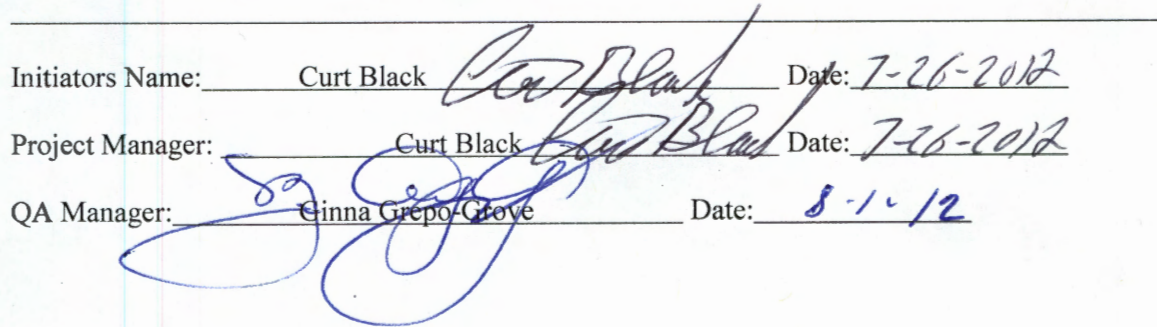 Initiators Name: Curt Black Curt Black Date: 7-26-2012
Project Manager: Curt Black Curt Black Date: 7-26-2012
QA Manager: Ginna Grepo-Grove Date: 8-1-12